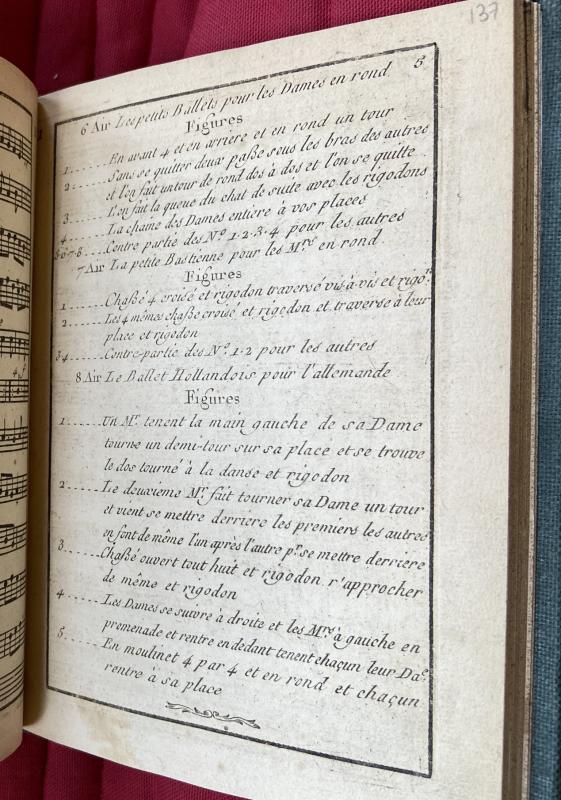 137
5
6 Air Les petits Ballets pour les Dames en rond.
Figures
1...... En avant 4 et en arriere et en rond un tour
2...... Sans se quitter deux paße sous les bras des autres
et l'on fait un tour de rond dos à dos et l'on se quitte
3...... L'on fait la queue du chat de suite avec les rigodons
4...... La chaine des Dames entiere à vos places
5·6·7·8.... Contre partie des No. 1·2·3·4 pour les autres
7 Air La petite Bastienne pour les Mrs en rond.
Figures
1...... Chaßé 4 croisé et rigodon traversé vis à vis et rigon.
2...... Les 4 mêmes chaßé croisé et rigodon et traverse à leur
place et rigodon
3·4..... Contre-partie des No. 1·2 pour les autres
8 Air Le Ballet Hollandois pour l'allemande
Figures
1...... Un Mr. tenent la main gauche de sa Dame
tourne un demi-tour sur sa place et se trouve
le dos tourné à la danse et rigodon
2..... Le deuxieme Mr. fait tourner sa Dame un tour
et vient se mettre derriere les premiers les autres
en font de même l'un après l'autre pr. se mettre derriere
3..... Chaßé ouvert tout huit et rigodon r'approcher
de même et rigodon
4..... Les Dames se suivre à droite et les Mrs à gauche en
promenade et rentre en dedant tenent chaçun leur Dae.
5..... En moulinet 4 par 4 et en rond et chaçun
rentre à sa place